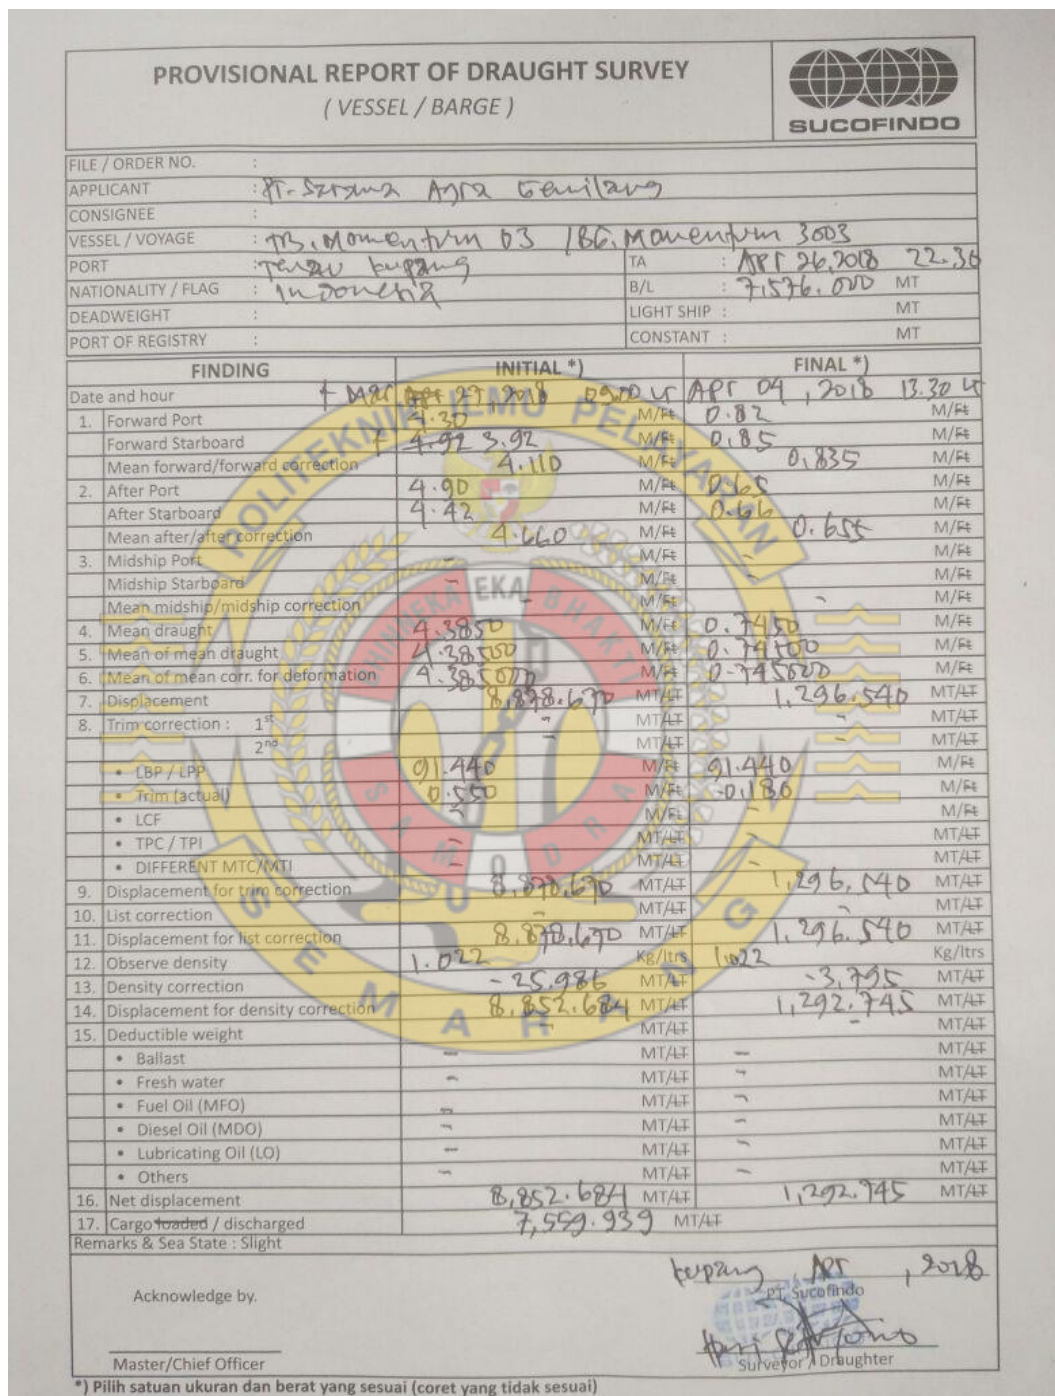 PROVISIONAL REPORT OF DRAUGHT SURVEY
( VESSEL / BARGE )
SUCOFINDO
FILE / ORDER NO. :
APPLICANT : PT. Sarana Agra Gemilang
CONSIGNEE :
VESSEL / VOYAGE : TB. Momentum 03 / BG. Momentum 3003
PORT : Tenau Kupang TA : APr 26, 2018 22.30
NATIONALITY / FLAG : Indonesia B/L : 7,576.000 MT
DEADWEIGHT : LIGHT SHIP : MT
PORT OF REGISTRY : CONSTANT : MT
FINDING INITIAL *) FINAL *)
Date and hour Mar Apr 27, 2018 09.00 LT APr 04, 2018 13.30 LT
1. Forward Port 4.30 M/Ft 0.82 M/Ft
Forward Starboard 4.92 3.92 M/Ft 0.85 M/Ft
Mean forward/forward correction 4.110 M/Ft 0.835 M/Ft
2. After Port 4.90 M/Ft 0.65 M/Ft
After Starboard 4.42 M/Ft 0.66 M/Ft
Mean after/after correction 4.660 M/Ft 0.655 M/Ft
3. Midship Port - M/Ft - M/Ft
Midship Starboard - M/Ft - M/Ft
Mean midship/midship correction - M/Ft - M/Ft
4. Mean draught 4.3850 M/Ft 0.7450 M/Ft
5. Mean of mean draught 4.38500 M/Ft 0.74500 M/Ft
6. Mean of mean corr. for deformation 4.385000 M/Ft 0.745000 M/Ft
7. Displacement 8,878.670 MT/LT 1,296.540 MT/LT
8. Trim correction : 1st - MT/LT - MT/LT
2nd - MT/LT - MT/LT
• LBP / LPP 91.440 M/Ft 91.440 M/Ft
• Trim (actual) 0.550 M/Ft -0,180 M/Ft
• LCF - M/Ft - M/Ft
• TPC / TPI - MT/LT - MT/LT
• DIFFERENT MTC/MTI - MT/LT - MT/LT
9. Displacement for trim correction 8,878,670 MT/LT 1,296,540 MT/LT
10. List correction - MT/LT - MT/LT
11. Displacement for list correction 8.878,670 MT/LT 1,296.540 MT/LT
12. Observe density 1.022 Kg/ltrs 1.022 Kg/ltrs
13. Density correction -25.986 MT/LT -3,795 MT/LT
14. Displacement for density correction 8,852.684 MT/LT 1,292.745 MT/LT
15. Deductible weight - MT/LT - MT/LT
• Ballast - MT/LT - MT/LT
• Fresh water - MT/LT - MT/LT
• Fuel Oil (MFO) - MT/LT - MT/LT
• Diesel Oil (MDO) - MT/LT - MT/LT
• Lubricating Oil (LO) - MT/LT - MT/LT
• Others - MT/LT - MT/LT
16. Net displacement 8,852.684 MT/LT 1,292.745 MT/LT
17. Cargo loaded / discharged 7,559.939 MT/LT
Remarks & Sea State : Slight
Kupang APr , 2018
Acknowledge by. PT. Sucofindo
Master/Chief Officer Surveyor / Draughter
*) Pilih satuan ukuran dan berat yang sesuai (coret yang tidak sesuai)
POLITEKNIK ILMU PELAYARAN
SEMARANG
BHINNEKA EKA BHAKTI
SAMUDRA